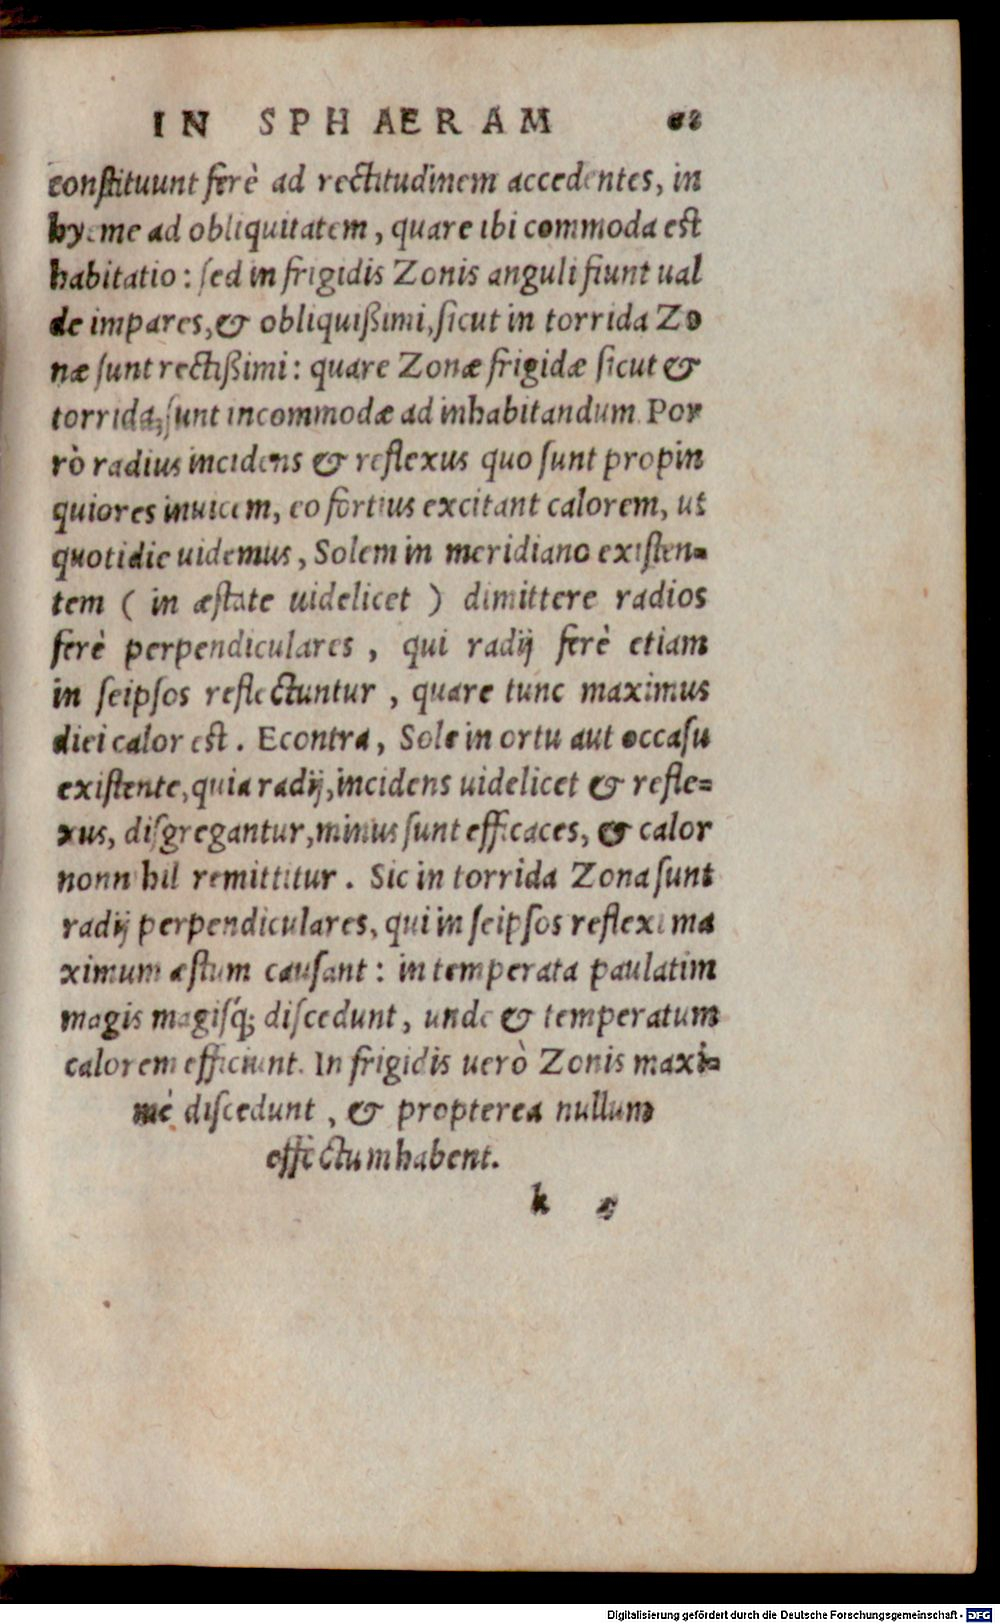 IN SPHAERAM 62
constituunt ferè ad rectitudinem accedentes, in
hyeme ad obliquitatem, quare ibi commoda est
habitatio: sed in frigidis Zonis anguli fiunt ual
de impares, & obliquißimi, sicut in torrida Zo
næ sunt rectißimi: quare Zonæ frigidæ sicut &
torrida, sunt incommodæ ad inhabitandum. Por
rò radius incidens & reflexus quo sunt propin
quiores inuicem, eo fortius excitant calorem, ut
quotidie uidemus, Solem in meridiano existen=
tem ( in æstate uidelicet ) dimittere radios
ferè perpendiculares, qui radij ferè etiam
in seipsos reflectuntur, quare tunc maximus
diei calor est. Econtra, Sole in ortu aut occasu
existente, quia radij, incidens uidelicet & refle=
xus, disgregantur, minus sunt efficaces, & calor
nonnihil remittitur. Sic in torrida Zona sunt
radij perpendiculares, qui in seipsos reflexi ma
ximum æstum causant: in temperata paulatim
magis magisq́; discedunt, unde & temperatum
calorem efficiunt. In frigidis uerò Zonis maxi=
mè discedunt, & propterea nullum
effectum habent.
k
Digitalisierung gefördert durch die Deutsche Forschungsgemeinschaft - DFG